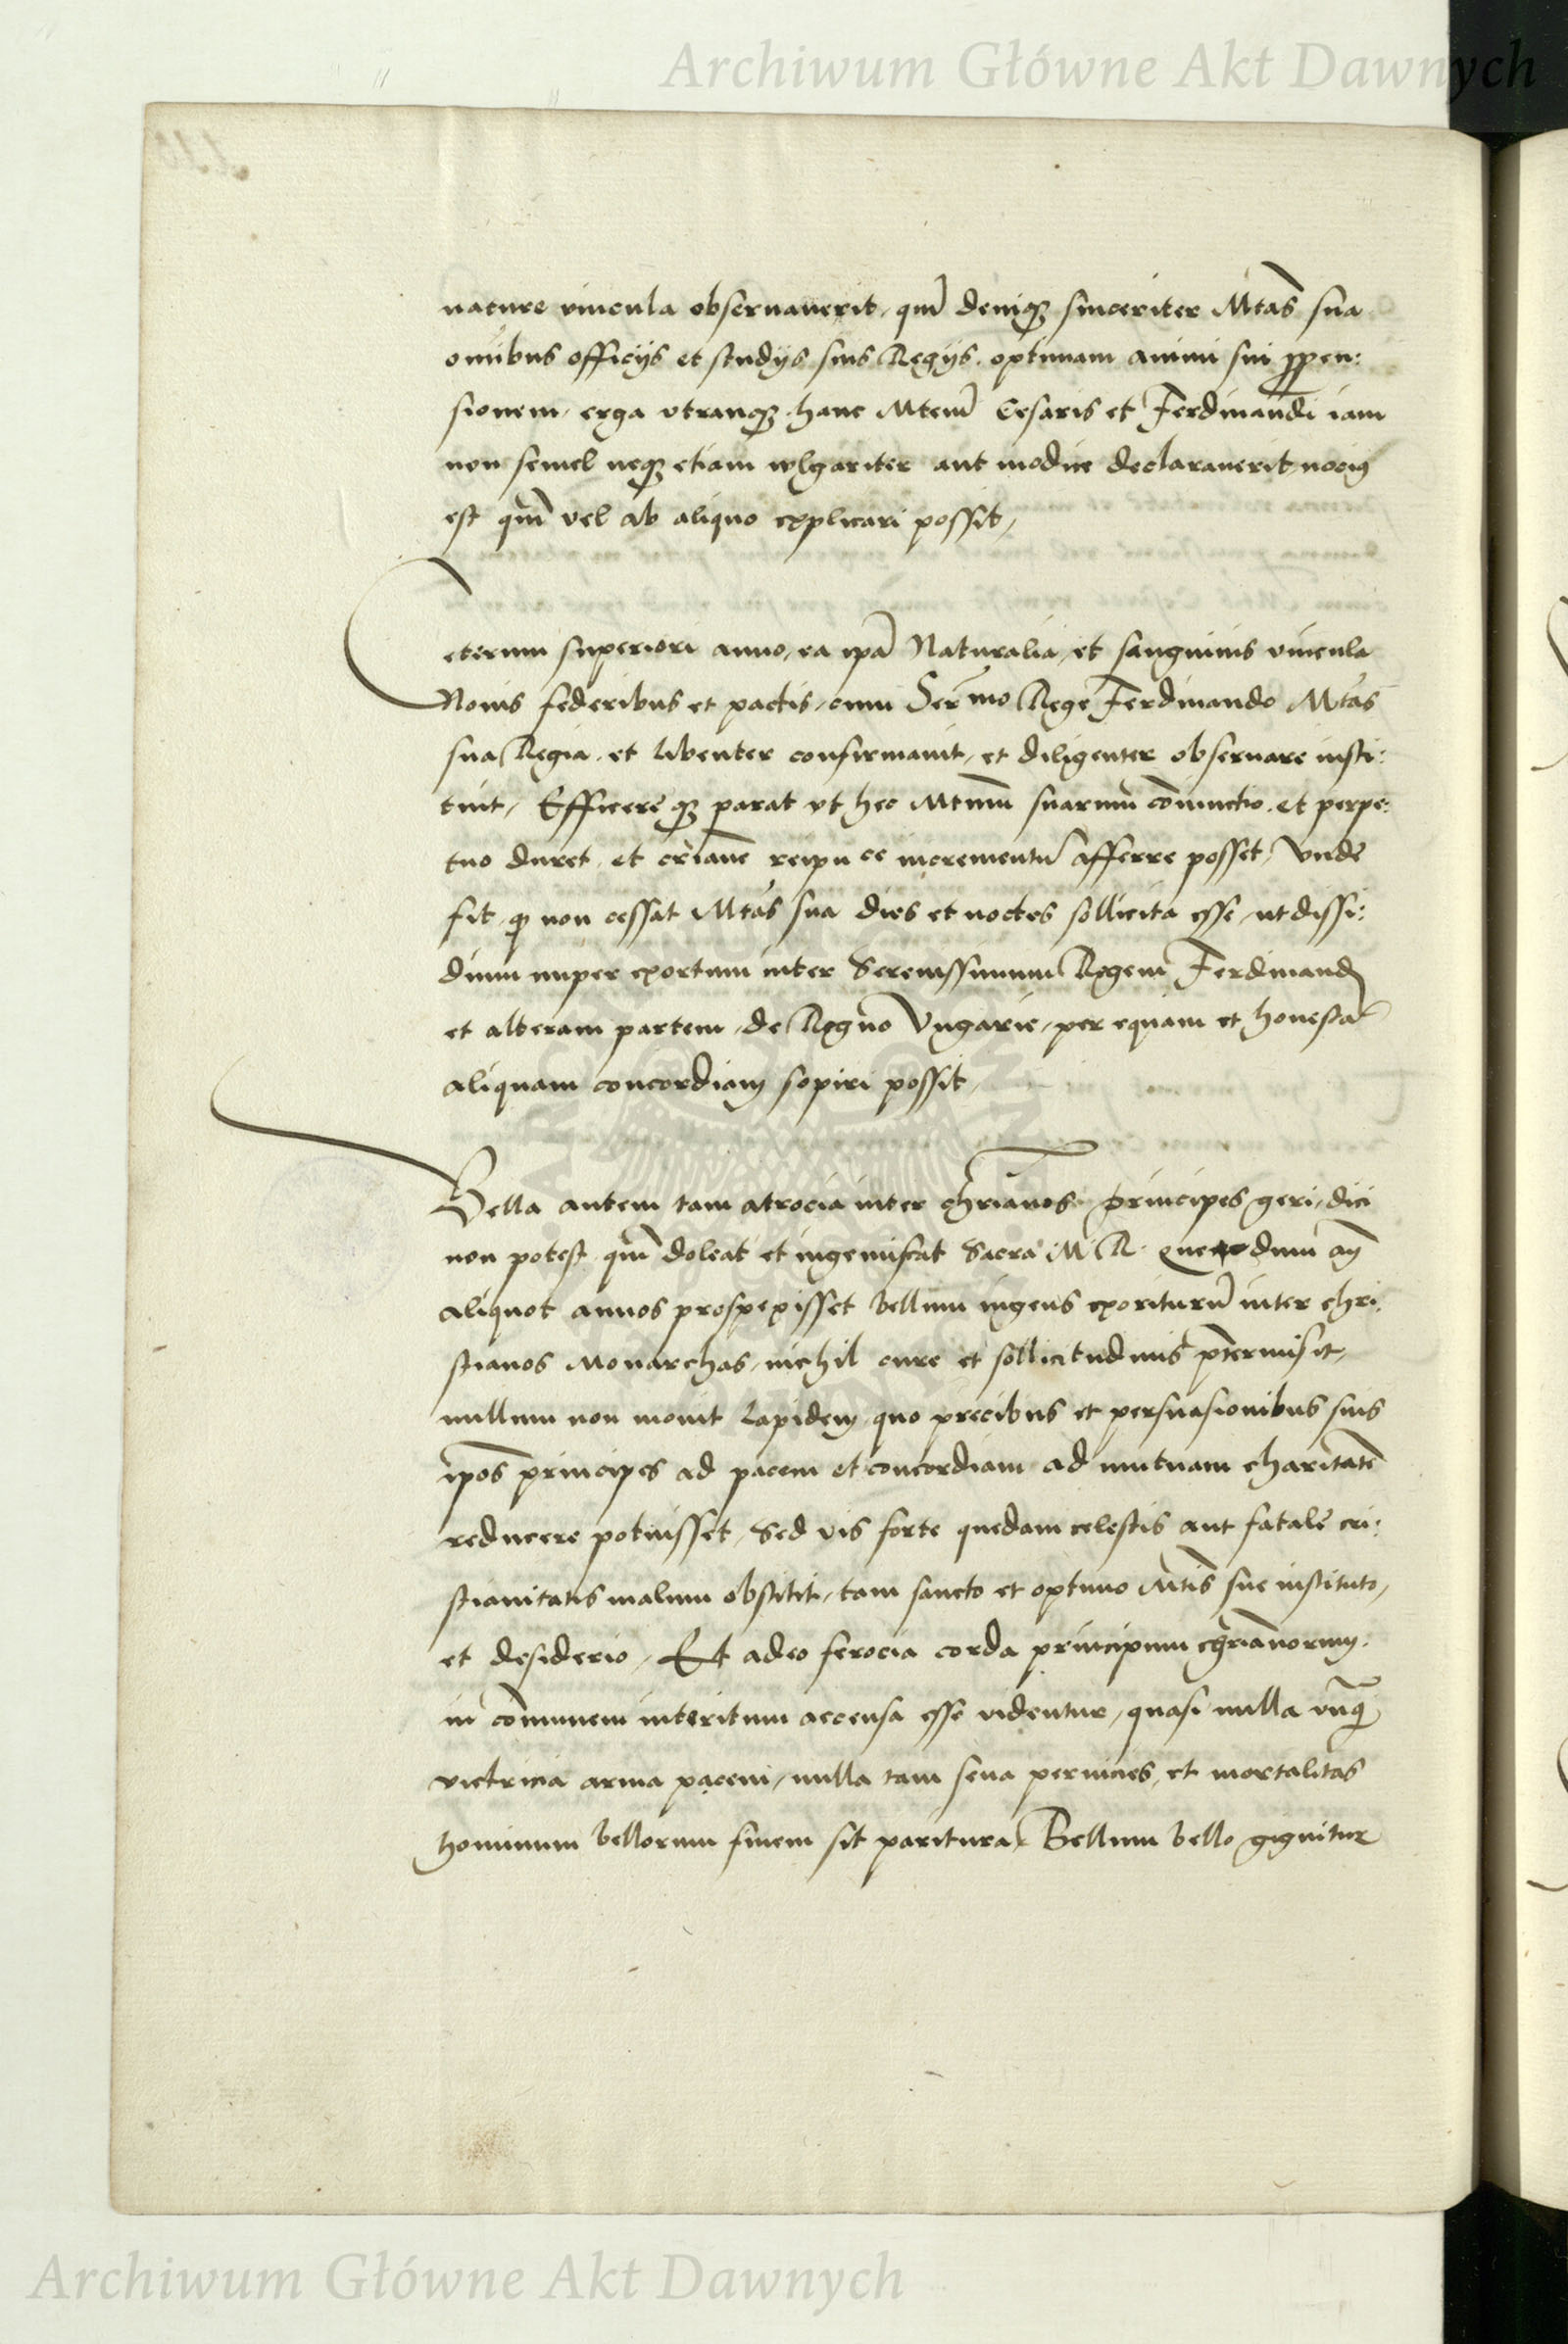 Archiwum Główne Akt Dawnych
nature vincula obseruauerit, qm̄ deniqꝫ sinceriter Mtas sua
omībus officijs et studijs suis Regijs, optimam animi sui ꝓpen:
sionem, erga vtranqꝫ hanc Mtem̄ Cesaris et Ferdinandi iam
non semel neqꝫ etiam wlgariter aut modice declarauerit
est qm̄ vel ab aliquo explicari possit,
Ceterum superiori anno, ea ip̄a Naturalia, et sanguinis vincula
Nouis federibus et pactis, cum Ser mo Rege Ferdinando Mtas
sua Regia, et libenter confirmauit, et diligenter obseruare insti:
tuit, Efficereqꝫ parat vt hec Mtum̄ suarum cōiunctio, et perpe:
tuo duret, et cr̄iane reipu ce incrementū afferre posset, Vnde
fit, ꝙ non cessat Mtas sua dies et noctes sollicita esse, ut dissi:
dium nuper exortum inter Serenissimum Regem Ferdinand
et alteram partem, de Regno Vngarie, per equam et honestā
aliquam concordiam sopiri possit,
Bella autem tam atrocia inter chr̄ianos principes geri, dici
non potest qm̄ doleat et ingemiscat Sacra M R. Que dum an̄
aliquot annos prospexisset bellum ingens exoriturū inter chri:
stianos Monarchas, nichil cure et sollicitudinis p̄termisit,
nullum non mouit Lapidem, quo precibus et persuasionibus suis
ip̄os principes ad pacem et concordiam ad mutuam charitatē
reducere potuisset, Sed vis forte quedam celestis aut fatale cri:
stianitatis malum obstitit, tam sancto et optimo Mtis sue instituto,
et desiderio, Et adeo ferocia corda principum chr̄ianorum,
in cōmunem interitum accensa esse videntur, quasi nulla vnꝙ̄
victricia arma pacem, nulla tam seua pernicies, et mortalitas
hominum bellorum finem sit paritura, Bellum bello gignitur
Archiwum Główne Akt Dawnych